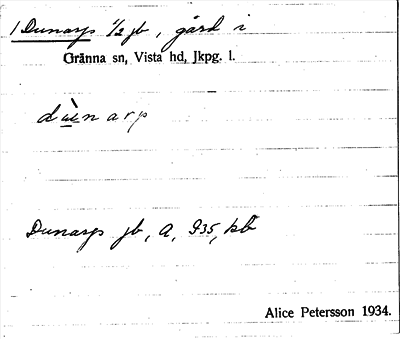 1 Dunarp 1/2 jb, gård i
Gränna sn, Vista hd, Jkpg. l.
dù̱e̱n arp
Dunarps jb, A, 935, kb
Alice Petersson 1934.